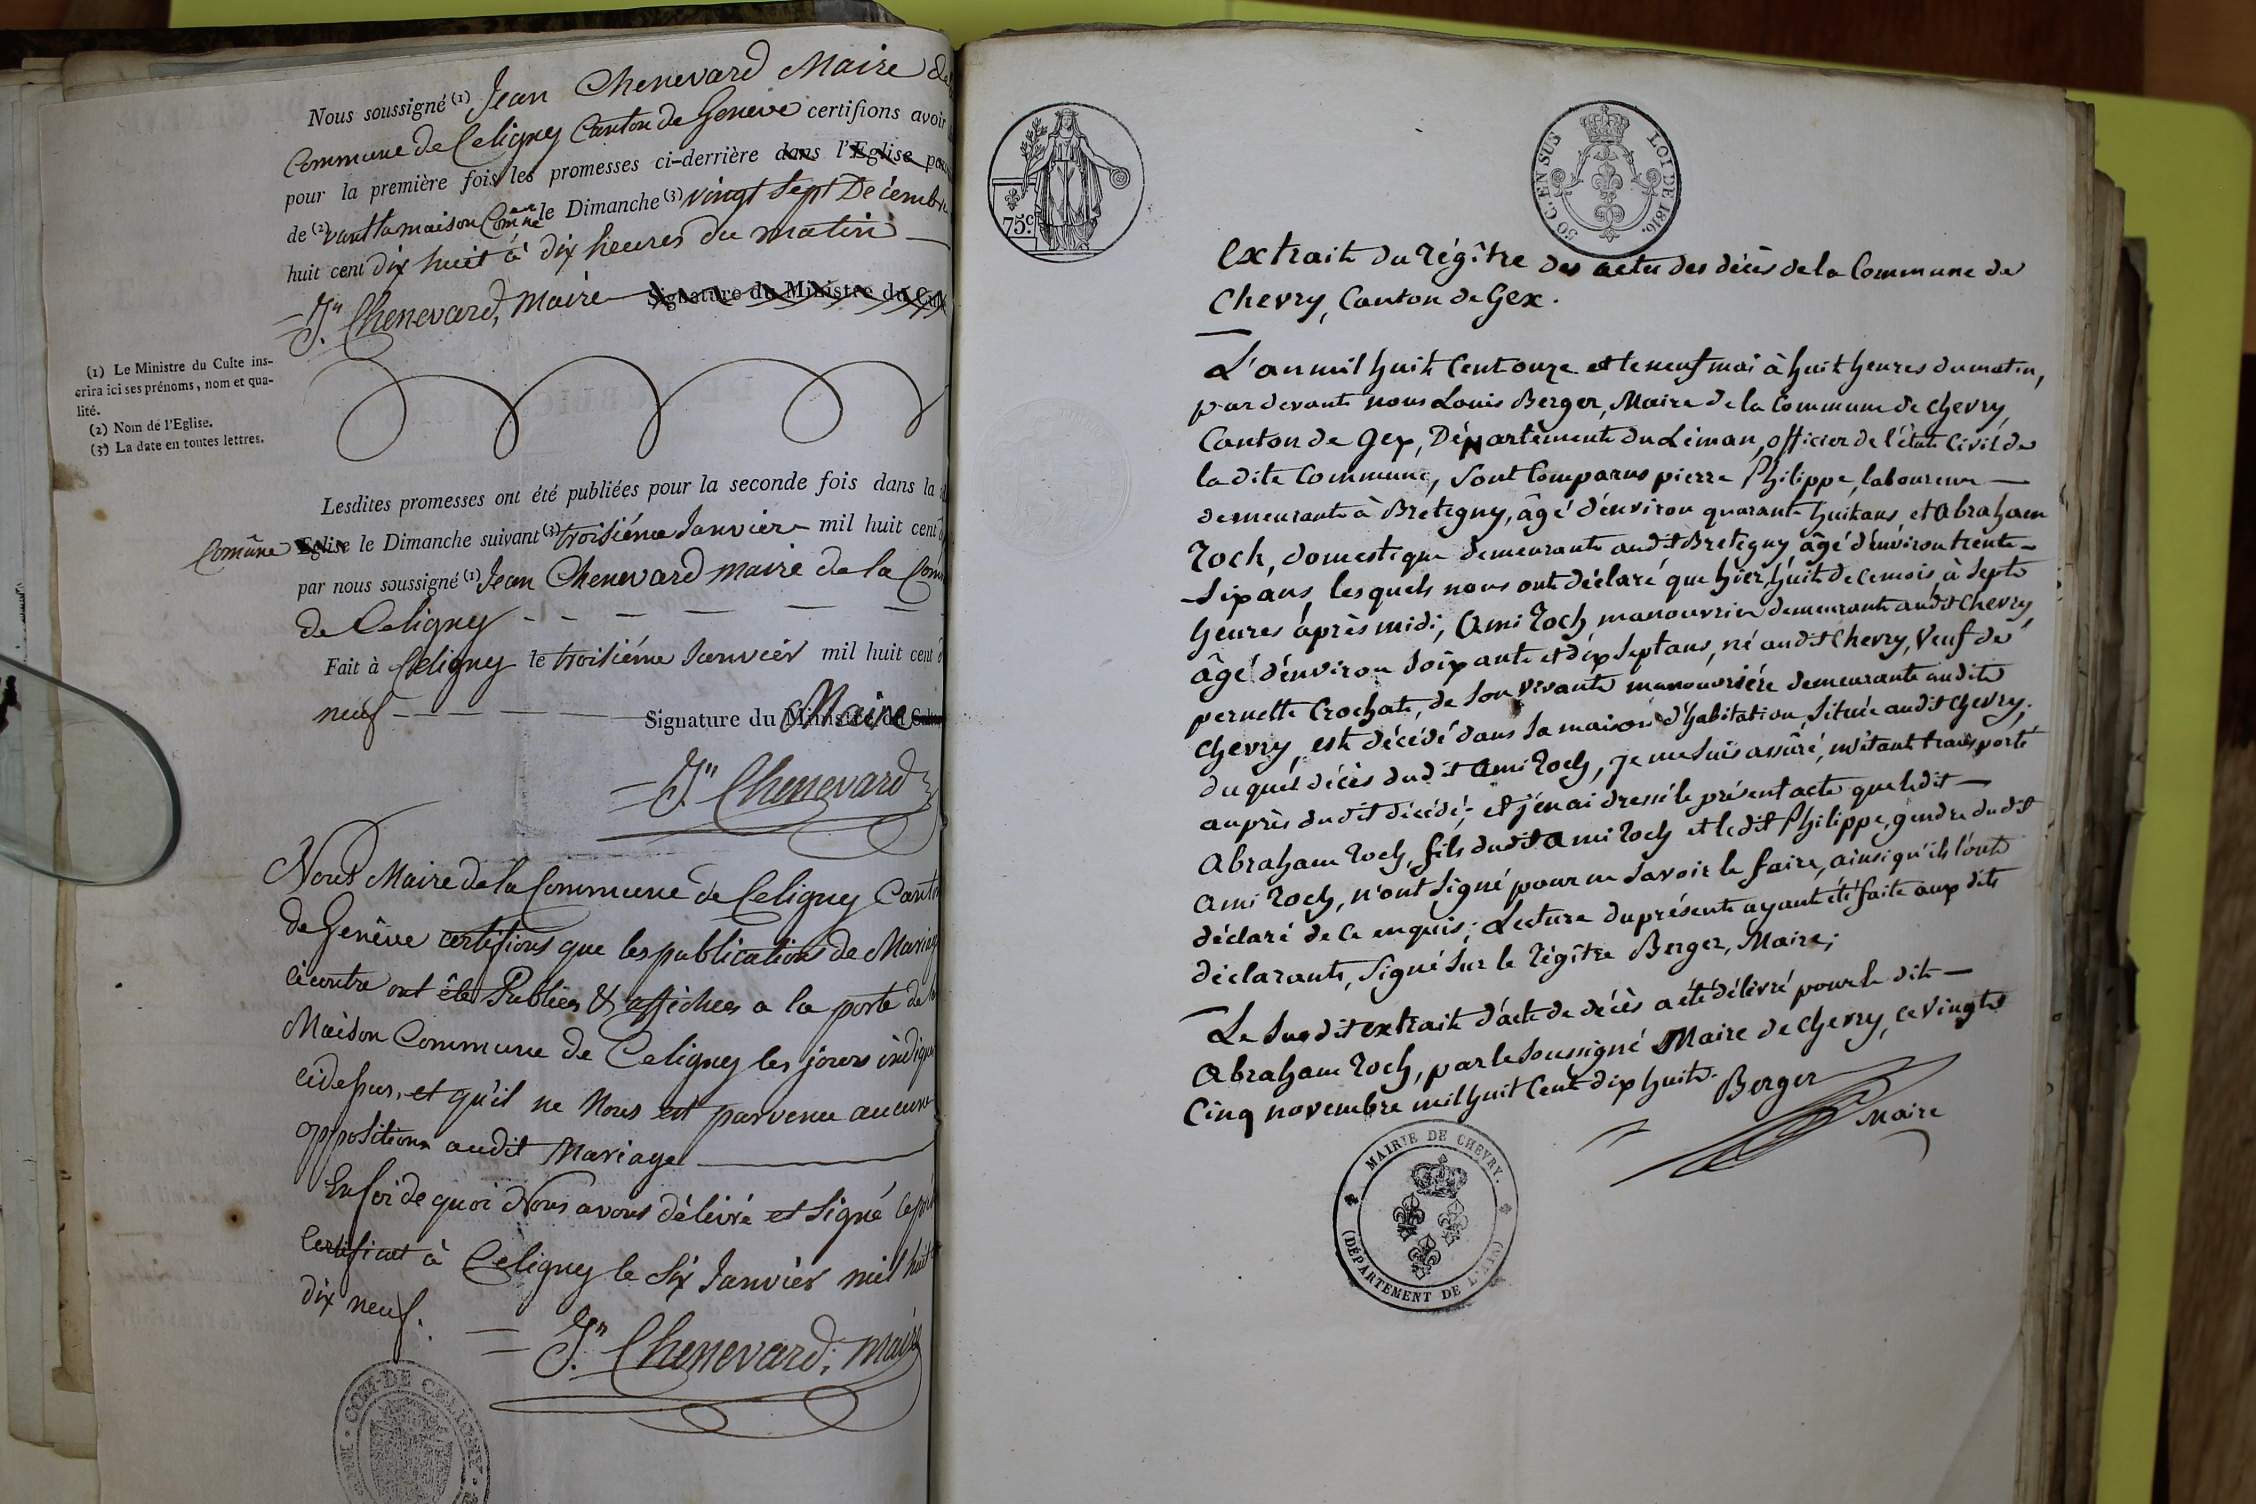 Nous soussigné (1) Jean Chenevard Maire de
Commune de Celigny Canton de Genève certifions avoir
pour la première fois les promesses ci-derrière dans l'Eglise
de (2) vant la maison Comune le Dimanche (3) vingt sept Décembre
huit cent dix huit à dix heures du matin
Jn Chenevard, Maire Signature du Ministre du Culte
(1) Le Ministre du Culte ins-
crira ici ses prénoms, nom et qua-
lité.
(2) Nom de l'Eglise.
(3) La date en toutes lettres.
Lesdites promesses ont été publiées pour la seconde fois dans la
Comûne Eglise le Dimanche suivant (3) troisiéme Janvier mil huit cent
par nous soussigné (1) Jean Chenevard maire de la Com
de Celigny
Fait à Celigny le troisiéme Janvier mil huit cent
neuf
Signature du Ministre du Culte Maire
Jn Chenevard
Nous Maire de la Commune de Celigny Canton
de Genêve certifions que les publications de Mariage
ci contre ont été Publiées & affichées a la porte de la
Maison Commune de Celigny les jours indiqué
cidessus, et qu'il ne Nous est parvenu aucune
opposition audit Mariage
En foi de quoi Nous avons délivré et signé le pré
Certificat à Celigny le six Janvier mil huit
dix neuf.
Jn Chenevard, maire
COM. DE CELIGNY
75 c.
50 C. EN SUS LOI DE 1816.
Extrait du régître des actes des décès de la Commune de
Chevry, Canton de Gex.
L'an mil huit cent onze et le neuf mai à huit heures du matin,
par devant nous Louis Berger, Maire de la Commune de Chevry,
Canton de Gex, Département du Léman, officier de l'état civil de
la dite Commune, sont comparus pierre Philippe, laboureur
demeurant à Bretigny, âgé d'environ quarante huit ans, et Abraham
Roch, domestique demeurant audit Bretigny âgé d'environ trente-
-six ans, lesquels nous ont déclaré que hier, huit de ce mois, à sept
heures après midi, Ami Roch manouvrier demeurant audit Chevry,
âgé d'environ soixante et dix sept ans, né audit Chevry, veuf de
pernette Crochat, de son vivant manouvrière demeurante audit
Chevry, est décédé dans sa maison d'habitation, située audit Chevry;
du quel décès dudit Ami Roch, je me suis assuré, m'étant transporté
auprès dudit décédé; et j'en ai dressé le présent acte que ledit
Abraham Roch, fils dudit Ami Roch et ledit Philippe, gendre dudit
Ami Roch, n'ont signé pour ne savoir le faire, ainsi qu'ils l'ont
déclaré de ce enquis; Lecture du présent ayant été faite aux dits
déclarants, signé sur le régître Berger, Maire;
Le susdit extrait d'acte de décès a été délivré pour le dit
Abraham Roch, par le soussigné Maire de Chevry, ce vingt
Cinq novembre mil huit cent dix huit.
Berger
Maire
MAIRIE DE CHEVRY.
(DÉPARTEMENT DE L'AIN)